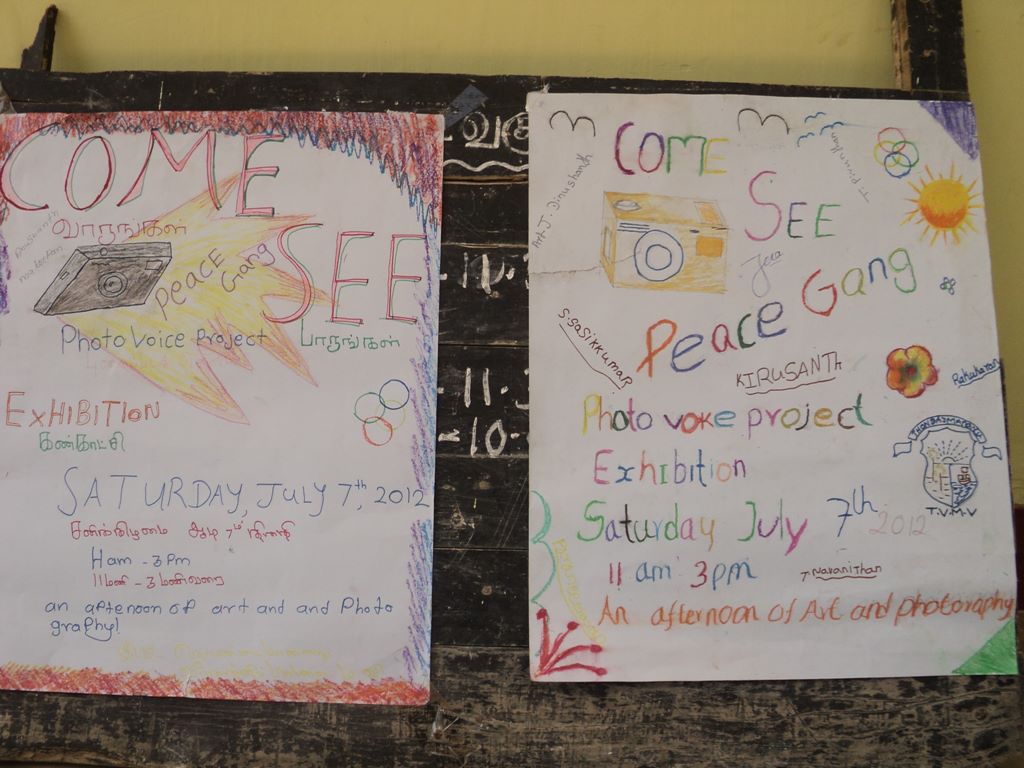 COME
வாருங்கள்
PEACE
Gang
SEE
Photo Voice Project
பாருங்கள்
EXHIBITION
கண்காட்சி
SATURDAY, JULY 7th, 2012
சனிக்கிழமை ஆடி 7ம் திகதி
11am - 3pm
11மணி - 3மணிவரை
an aftenoon of art and and Photo
graphy!
வகு
-11.
-11.
-10.
COME
SEE
Art J. Dinushanth
Jera
Peace Gang
S.SaSikkumar
KIRUSANTh
Rahukaran
Photo voice project
Exhibition
T.V.M.V
Saturday July 7th 2012
11 am 3pm
T Naranithan
An afternoon of Art and photoraphy